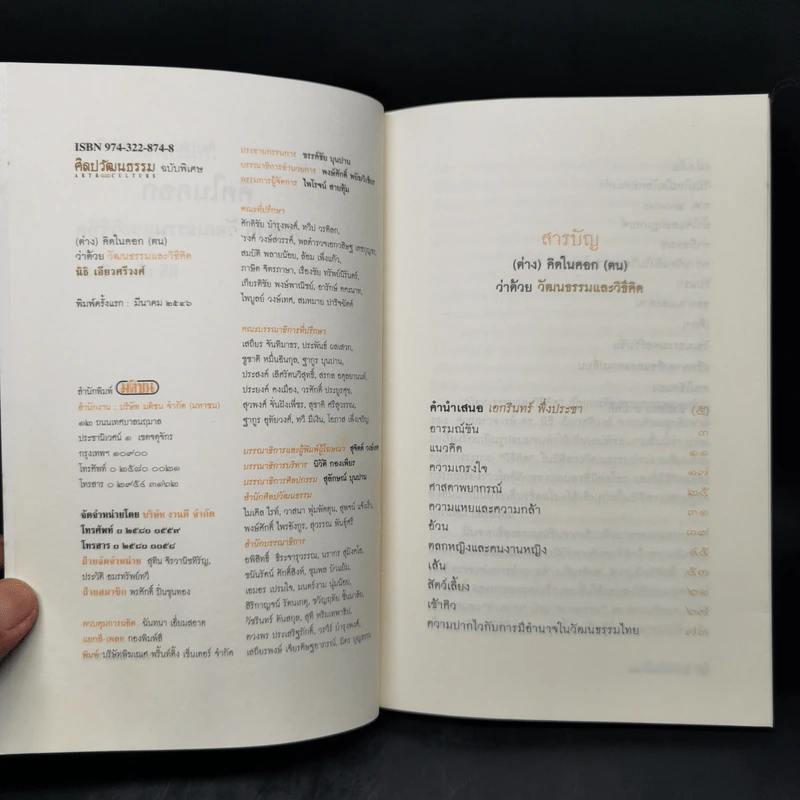 ISBN 974-322-874-8
ศิลปวัฒนธรรม ฉบับพิเศษ
ARTS & CULTURE
(ต่าง) คิดในคอก (ตน)
ว่าด้วย วัฒนธรรมและวิธีคิด
นิธิ เอียวศรีวงศ์
พิมพ์ครั้งแรก : มีนาคม ๒๕๔๖
สำนักพิมพ์ มติชน
สำนักงาน : บริษัท มติชน จำกัด (มหาชน)
๑๒ ถนนเทศบาลนฤมาล
ประชานิเวศน์ ๑ เขตจตุจักร
กรุงเทพฯ ๑๐๙๐๐
โทรศัพท์ ๐ ๒๕๘๐ ๐๐๒๑
โทรสาร ๐ ๒๙๕๔ ๓๑๖๒
จัดจำหน่ายโดย บริษัท งานดี จำกัด
โทรศัพท์ ๐ ๒๕๘๐ ๐๕๕๙
โทรสาร ๐ ๒๕๘๑ ๐๐๕๘
ฝ่ายจัดจำหน่าย สุทิน จิรวาณิชหิรัญ,
ประวัติ อมรทรัพย์ทวี
ฝ่ายสมาชิก พรศักดิ์ ปิ่นขุนทอง
ควบคุมการผลิต : ฉันทนา เชี่ยมสอาด
แยกสี-เพลท กองพิมพ์สี
พิมพ์ บริษัทพิฆเณศ พริ้นต์ติ้ง เซ็นเตอร์ จำกัด
ประธานกรรมการ ขรรค์ชัย บุนปาน
บรรณาธิการอำนวยการ พงษ์ศักดิ์
กรรมการผู้จัดการ ไพโรจน์ สายทุ้ม
คณะที่ปรึกษา
ศักดิชัย บำรุงพงศ์, ทวีป วรดิลก,
ณรงค์ วงษ์สวรรค์,
สมบัติ พลายน้อย, ล้อม เพ็งแก้ว,
ภาษิต จิตรภาษา, เรืองชัย ทรัพย์นิรันดร์,
เกียรติชัย พงษ์พาณิชย์, อารักษ์ คคะนาท,
ไพบูลย์ วงษ์เทศ, สมหมาย ปาริจฉัตต์
คณะบรรณาธิการที่ปรึกษา
เสถียร จันทิมาธร, ประพันธ์ ผลเสวก,
ชูชาติ หมื่นอินกุล, ฐากูร บุนปาน,
ประสงค์ เลิศรัตนวิสุทธิ์,
ประยงค์ คงเมือง,
สุวพงศ์ จั่นฝังเพ็ชร, สุชาติ ศรีสุวรรณ,
ทวี มีเงิน, โอภาส เพ็งเจริญ
บรรณาธิการและผู้พิมพ์ผู้โฆษณา สุจิตต์
บรรณาธิการบริหาร นิวัติ กองเพียร
บรรณาธิการศิลปกรรม สุลักษณ์ บุนปาน
สำนักศิลปวัฒนธรรม
ไมเคิล ไรท์, วาสนา พุ่มพัดตุน, สุพจน์ แจ้งเร็ว,
พงษ์ศักดิ์ ไพรอังกูร, สุวรรณ พันธุ์ศรี
สำนักบรรณาธิการ
อพิสิทธิ์ ธีระจารุวรรณ,
ชนันรัตน์ ศักดิ์สิงห์,
เอมอร เปรมใจ,
สิริกาญจน์ รัตนเกตุ,
ดวงพร ประเสริฐภักดิ์,
สารบัญ
(ต่าง) คิดในคอก (ตน)
ว่าด้วย วัฒนธรรมและวิธีคิด
คำนำเสนอ เอกรินทร์ พึ่งประชา (๕)
อารมณ์ขัน ๓
แนวคิด ๑๑
ความเกรงใจ ๑๗
ศาสดาพยากรณ์ ๒๕
ความแหยและความกล้า ๓๑
อ้วน ๓๙
ตลกหญิงและคนงานหญิง ๔๕
เส้น ๕๓
สัตว์เลี้ยง ๖๑
เข้าคิว
ความปากไวกับการมีอำนาจในวัฒนธรรมไทย